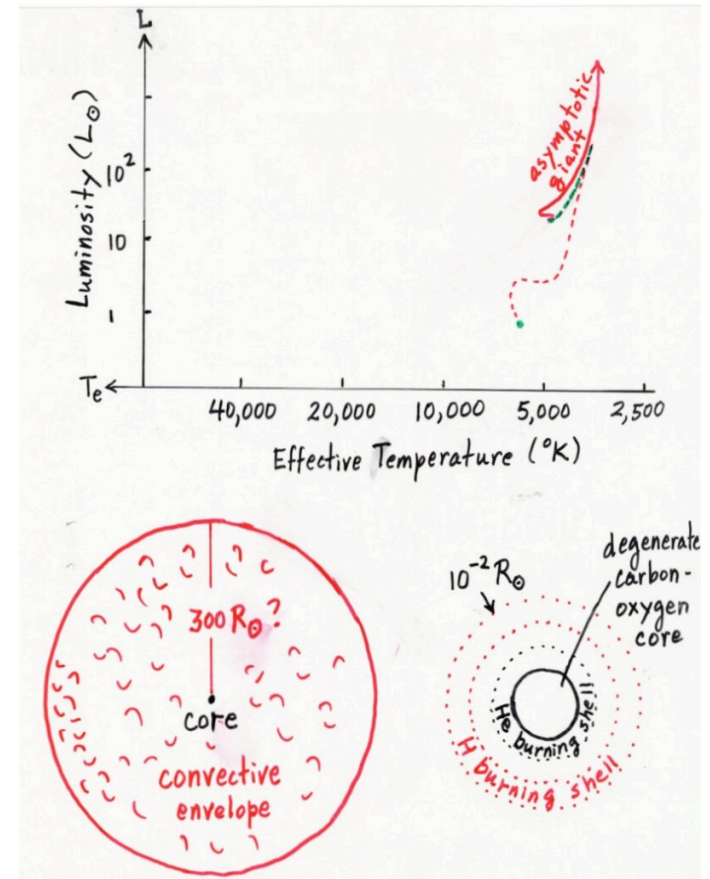 L
Luminosity (L⊙)
10²
10
1
asymptotic
giant
Te
40,000 20,000 10,000 5,000 2,500
Effective Temperature (°K)
300 R⊙?
core
convective
envelope
10⁻² R⊙
degenerate
carbon-
oxygen
core
He burning shell
H burning shell